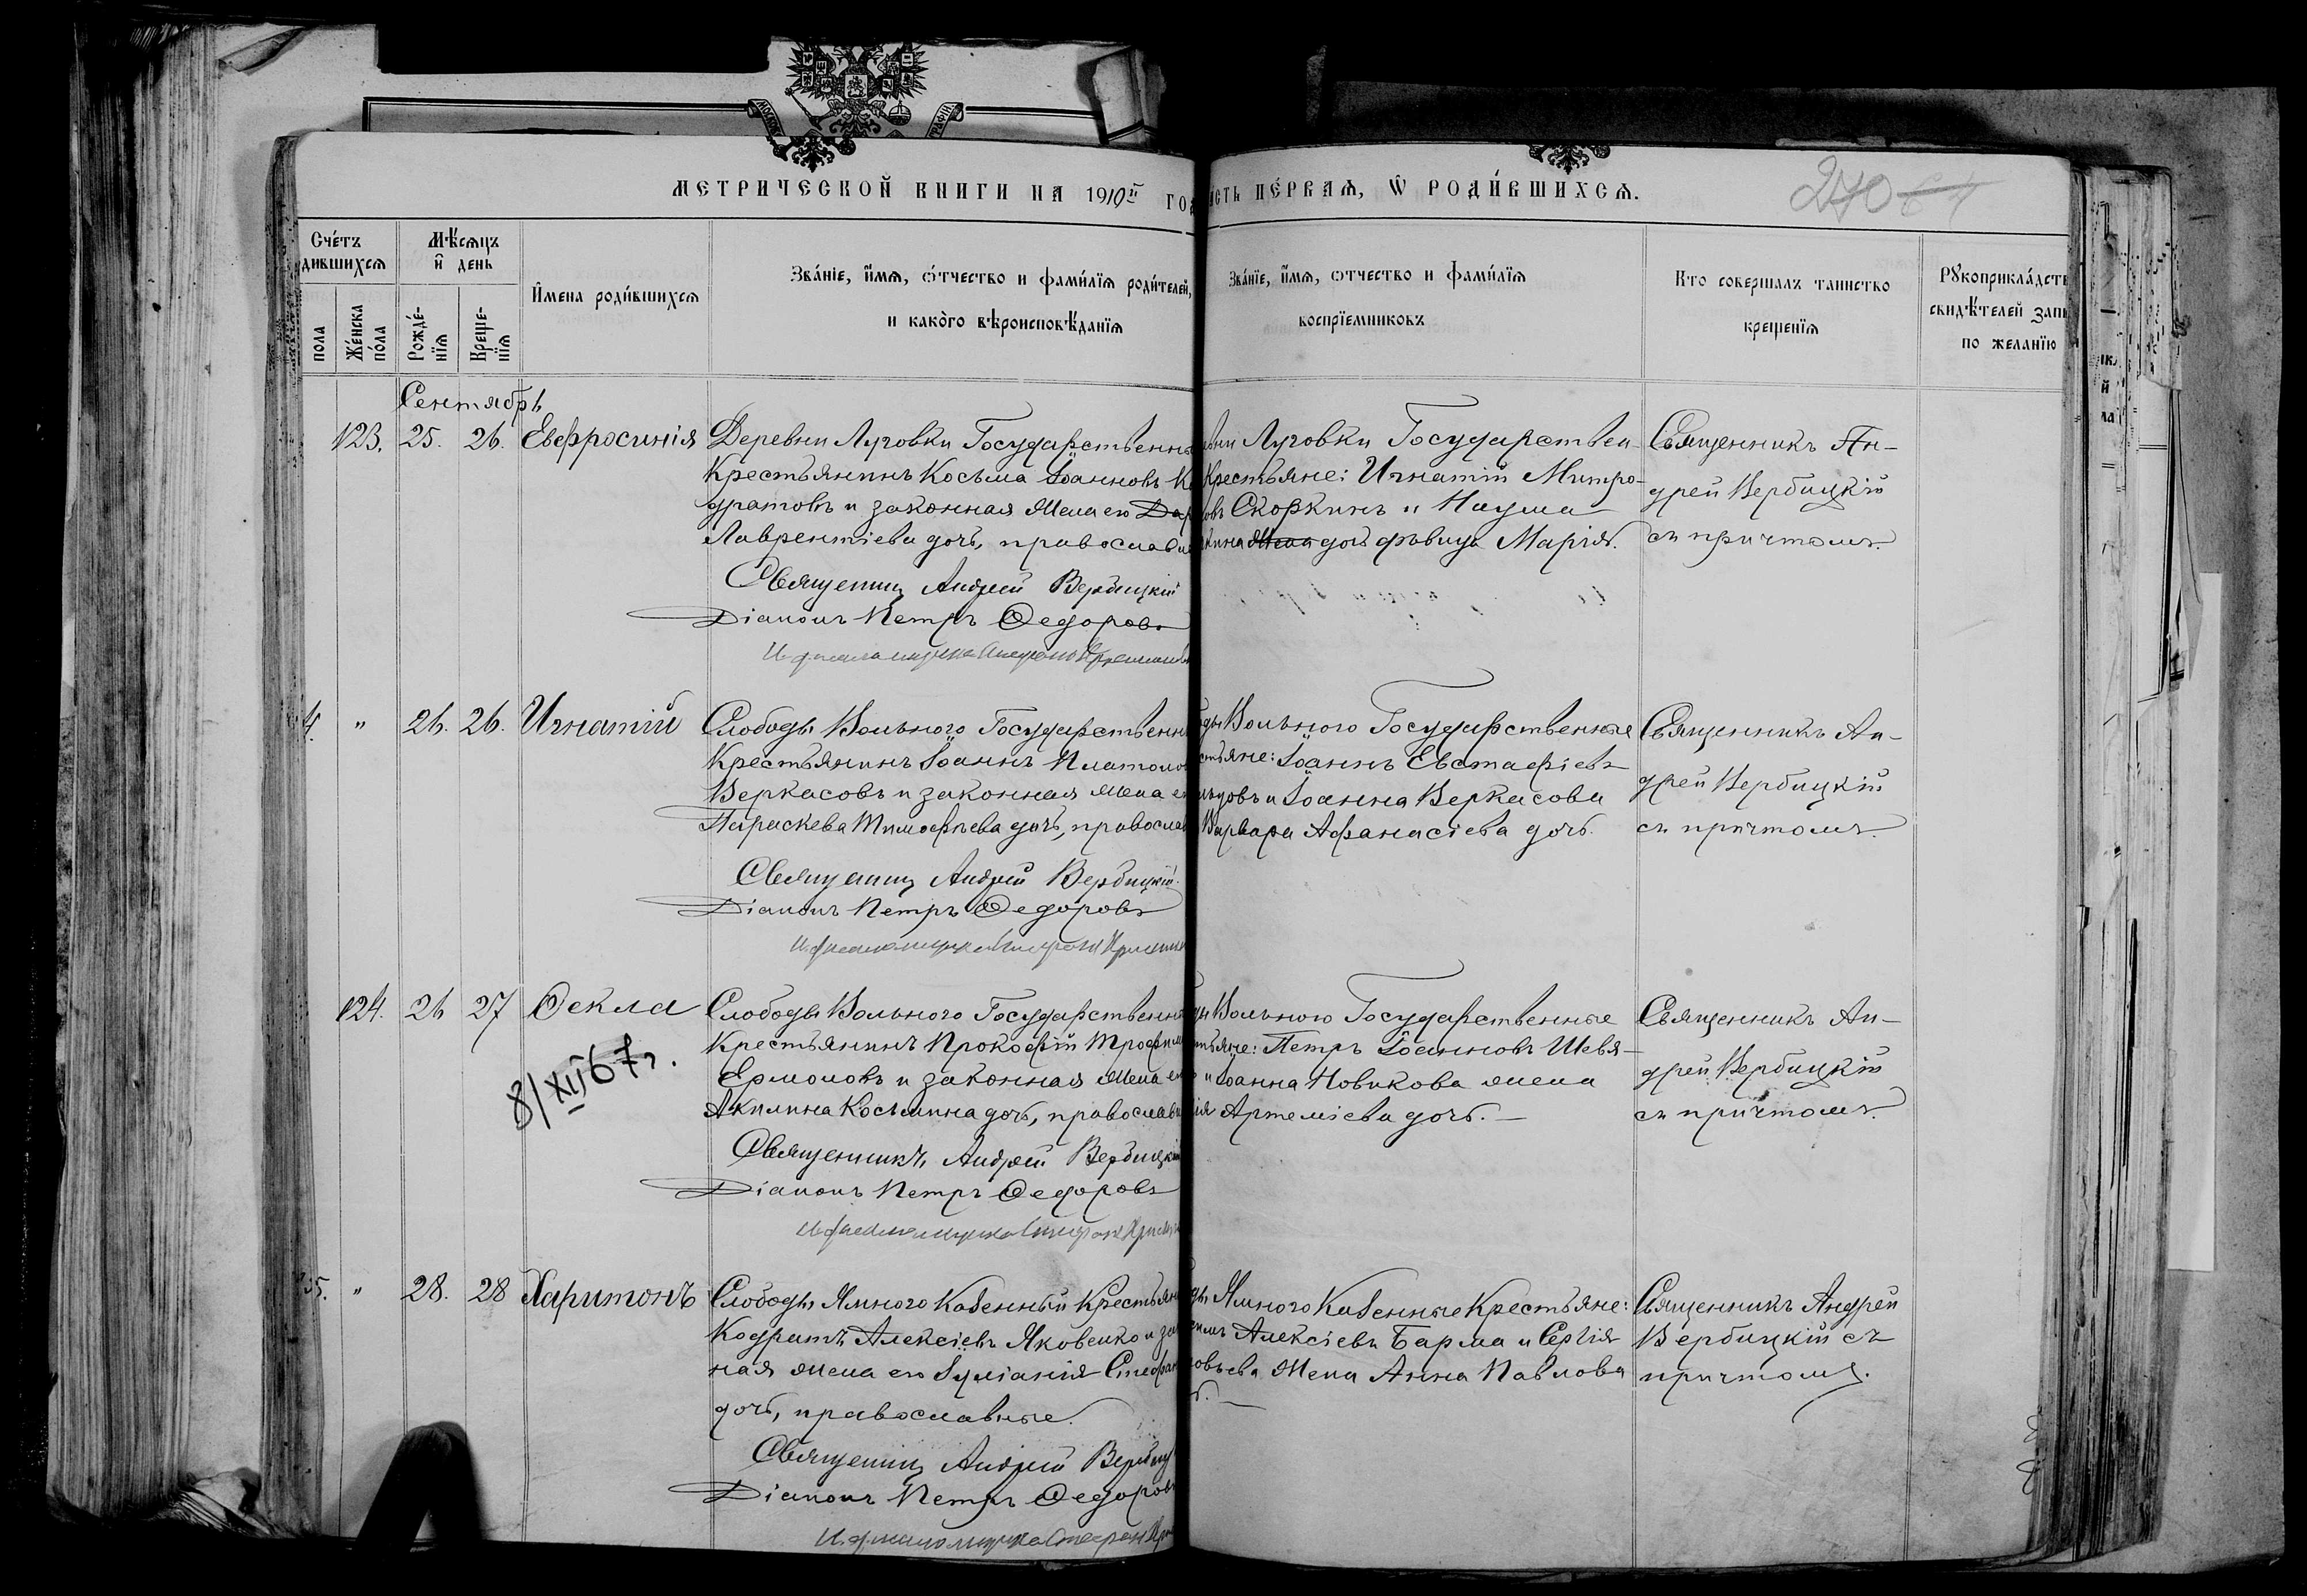 МЕТРИЧЕСКОЙ КНИГИ НА 1910й ГО
АСТЬ ПЕРВАЯ, Ѿ РОДИВШИХСЯ.
270
Счетъ
дившихся
Мѣсяцъ
и день
пола
Женска пола
Рожденія
Крещенія
Имена родившихся
Званіе, имя, отчество и фамилія родителей,
и какого вѣроисповѣданія
Званіе, имя, отчество и фамилія
воспріемниковъ
Кто совершалъ таинство
крещенія
Рукоприкладств
свидѣтелей запи
по желанію
Сентябрь
123. 25. 26. Евфросинія
Деревни Луговки Государственны
Крестьянинъ Косьма Іоанновъ Ко
дратовъ и законная жена его Дар
Лаврентіева дочь, православн
Священникъ Андрей Вербицкій
Діаконъ Петръ Ѳедоровъ
вни Луговки Государствен-
Крестьяне: Игнатій Митро-
овъ Скоркинъ и Наума
кина жена дочь дѣвица Марія.
Священникъ Ан-
дрей Вербицкій
съ причтомъ.
4. " 26. 26. Игнатій
Слободы Вольного Государственн
Крестьянинъ Іоаннъ Платоно
Веркасовъ и законная жена е
Параскева Тимофѣева дочь, православ
Священникъ Андрей Вербицкій.
Діаконъ Петръ Ѳедоровъ
ды Вольного Государственные
стьяне: Іоаннъ Евстафіевъ
ьцовъ и Іоанна Веркасова
Варвара Афанасіева дочь.
Священникъ Ан-
дрей Вербицкій
съ причтомъ.
124. 26 27 Ѳекла
8/XII 67г.
Слободы Вольного Государственны
Крестьянинъ Прокофій Трофим
Ермоловъ и законная жена ег
Акилина Косьмина дочь, православн
Священникъ Андрей Вербицкій
Діаконъ Петръ Ѳедоровъ
ды Вольного Государственные
стьяне: Петръ Іоанновъ Шевя-
и Іоанна Новикова жена
ія Артеміева дочь. —
Священникъ Ан-
дрей Вербицкій
съ причтомъ.
5. " 28. 28 Харитонъ
Слободы Ямного Казенный Крестьян
Кодратъ Алексіевъ Яковенко и за
ная жена его Іуліанія Стефан
дочь, православные.
Священникъ Андрей Вербиц
Діаконъ Петръ Ѳедоровъ
ды Ямного Казенные Крестьяне:
Алексіевъ Барма и Сергія
овьева жена Анна Павлова
Священникъ Андрей
Вербицкій съ
причтомъ.